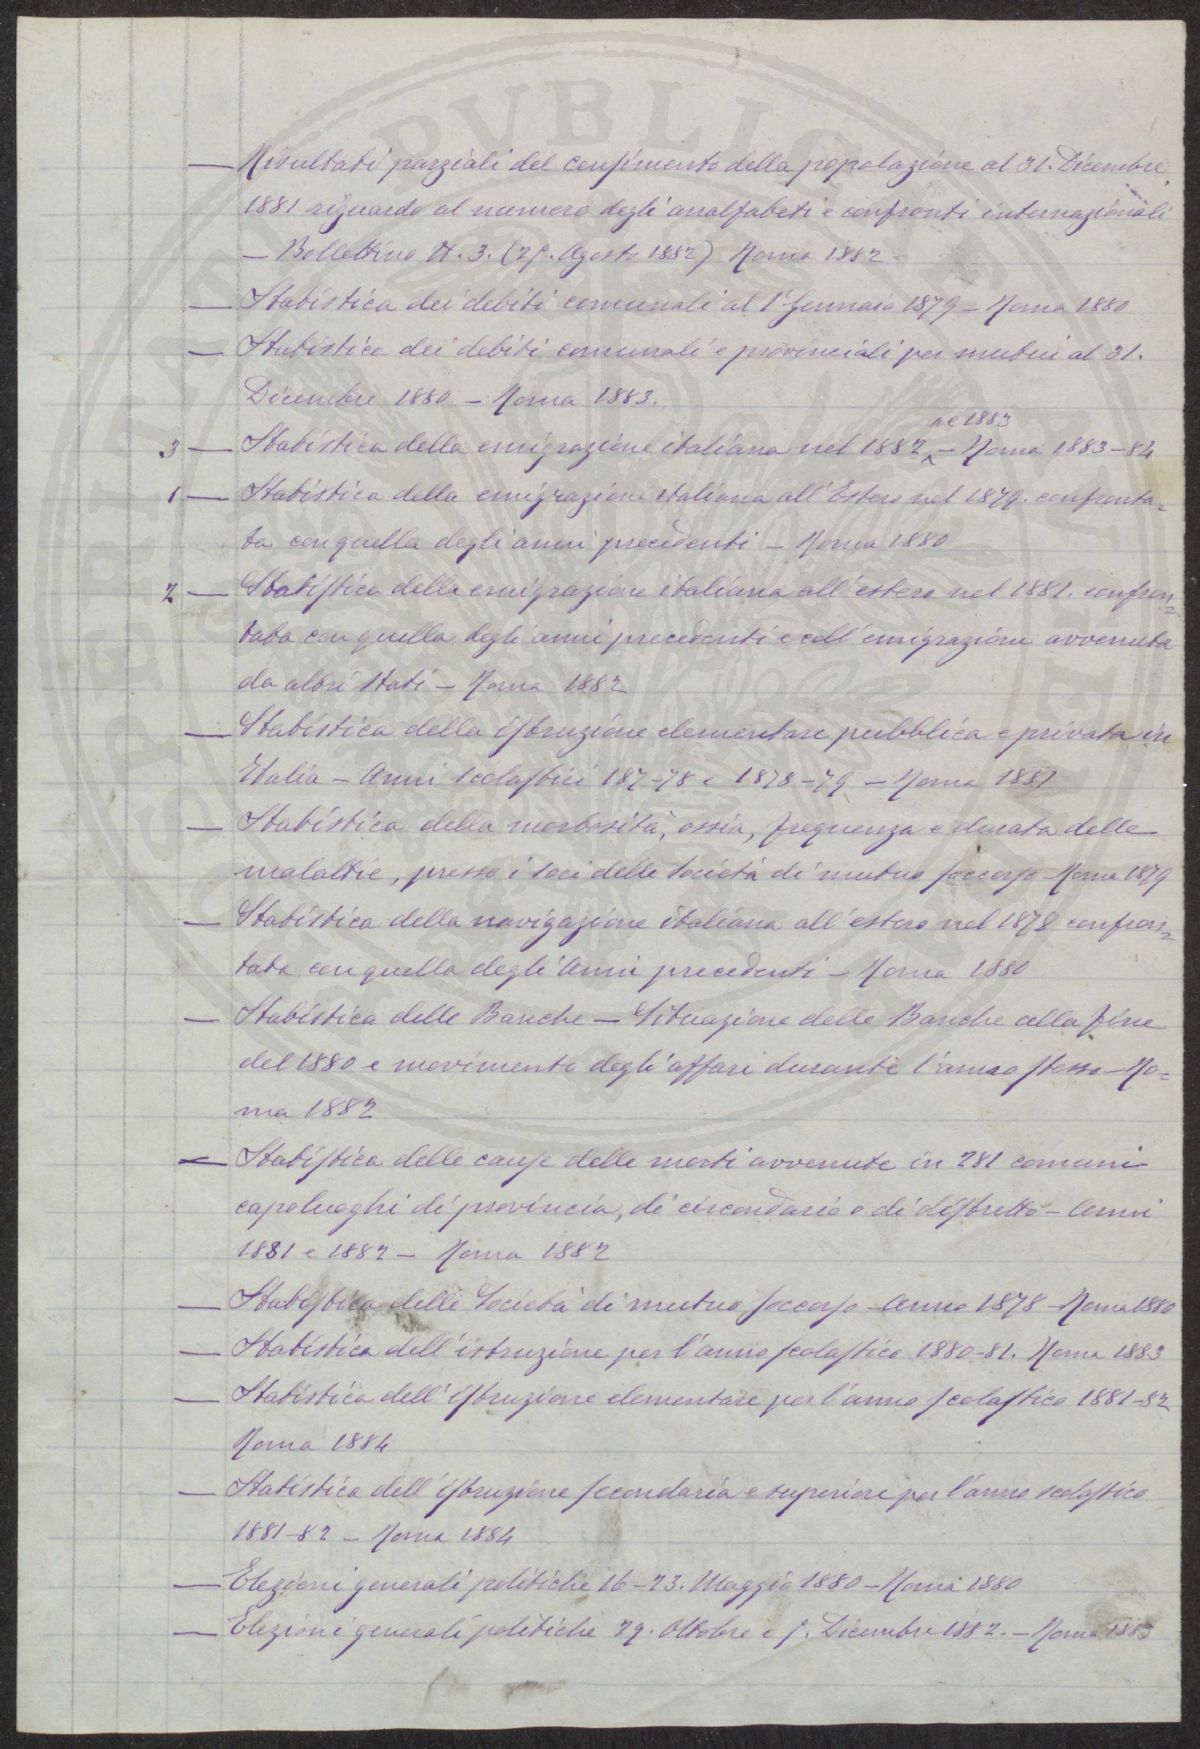 — Risultati parziali del censimento della popolazione al 31. Dicembre
1881 riguardo al numero degli analfabeti e confronti internazionali
— Bollettino N. 3. (25. Agosto 1882) Roma 1882
— Statistica dei debiti comunali al 1° Gennaio 1879 – Roma 1880
— Statistica dei debiti comunali e provinciali per mutui al 31.
Dicembre 1880 – Roma 1883.
ne 1883
3 — Statistica della emigrazione italiana nel 1882 – Roma 1883–84
1 — Statistica della emigrazione italiana all'Estero nel 1879. confronta=
ta con quella degli anni precedenti – Roma 1880
2 — Statistica della emigrazione italiana all'estero nel 1881. confron=
tata con quella degli anni precedenti e coll'emigrazione avvenuta
da altri Stati – Roma 1882
— Statistica della istruzione elementare pubblica e privata in
Italia – Anni scolastici 187–78 e 1878–79 – Roma 1881
— Statistica della morbosità, ossia, frequenza e durata delle
malattie, presso i soci delle Società di mutuo soccorso – Roma 1879
— Statistica della navigazione italiana all'estero nel 1878 confron=
tata con quella degli Anni precedenti – Roma 1880
— Statistica delle Banche – Situazione delle Banche alla fine
del 1880 e movimento degli affari durante l'anno stesso – Ro=
ma 1882
— Statistica delle cause delle morti avvenute in 281 comuni
capoluoghi di provincia, di circondario o di distretto – Anni
1881 e 1882 – Roma 1882
— Statistica delle Società di mutuo soccorso – Anno 1878 – Roma 1880
— Statistica dell'istruzione per l'anno scolastico 1880–81. Roma 1883
— Statistica dell'istruzione elementare per l'anno scolastico 1881–82
Roma 1884
— Statistica dell'istruzione secondaria e superiore per l'anno scolastico
1881–82 – Roma 1884
— Elezioni generali politiche 16–23. Maggio 1880 – Roma 1880
— Elezioni generali politiche 29. Ottobre e 5. Dicembre 1882. – Roma 1883